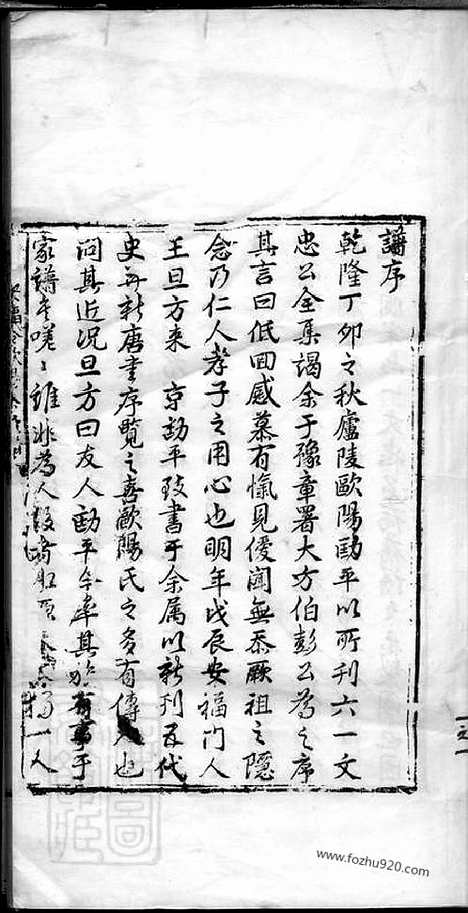 譜序
乾隆丁卯之秋廬陵歐陽勛平以所刊六一文
忠公全集謁余于豫章署大方伯彭公為之序
其言曰低回感慕有愾見僾聞無忝厥祖之隱
念乃仁人孝子之用心也明年戊辰安福門人
王旦方來 京勛平致書于余属以新刊五代
史和新唐書序覽之喜歐陽氏之多有傳人也
问其近況旦方曰友人勛平率其族有事于
家譜 嗟〻雖非為人 一人
www.fozhu920.com